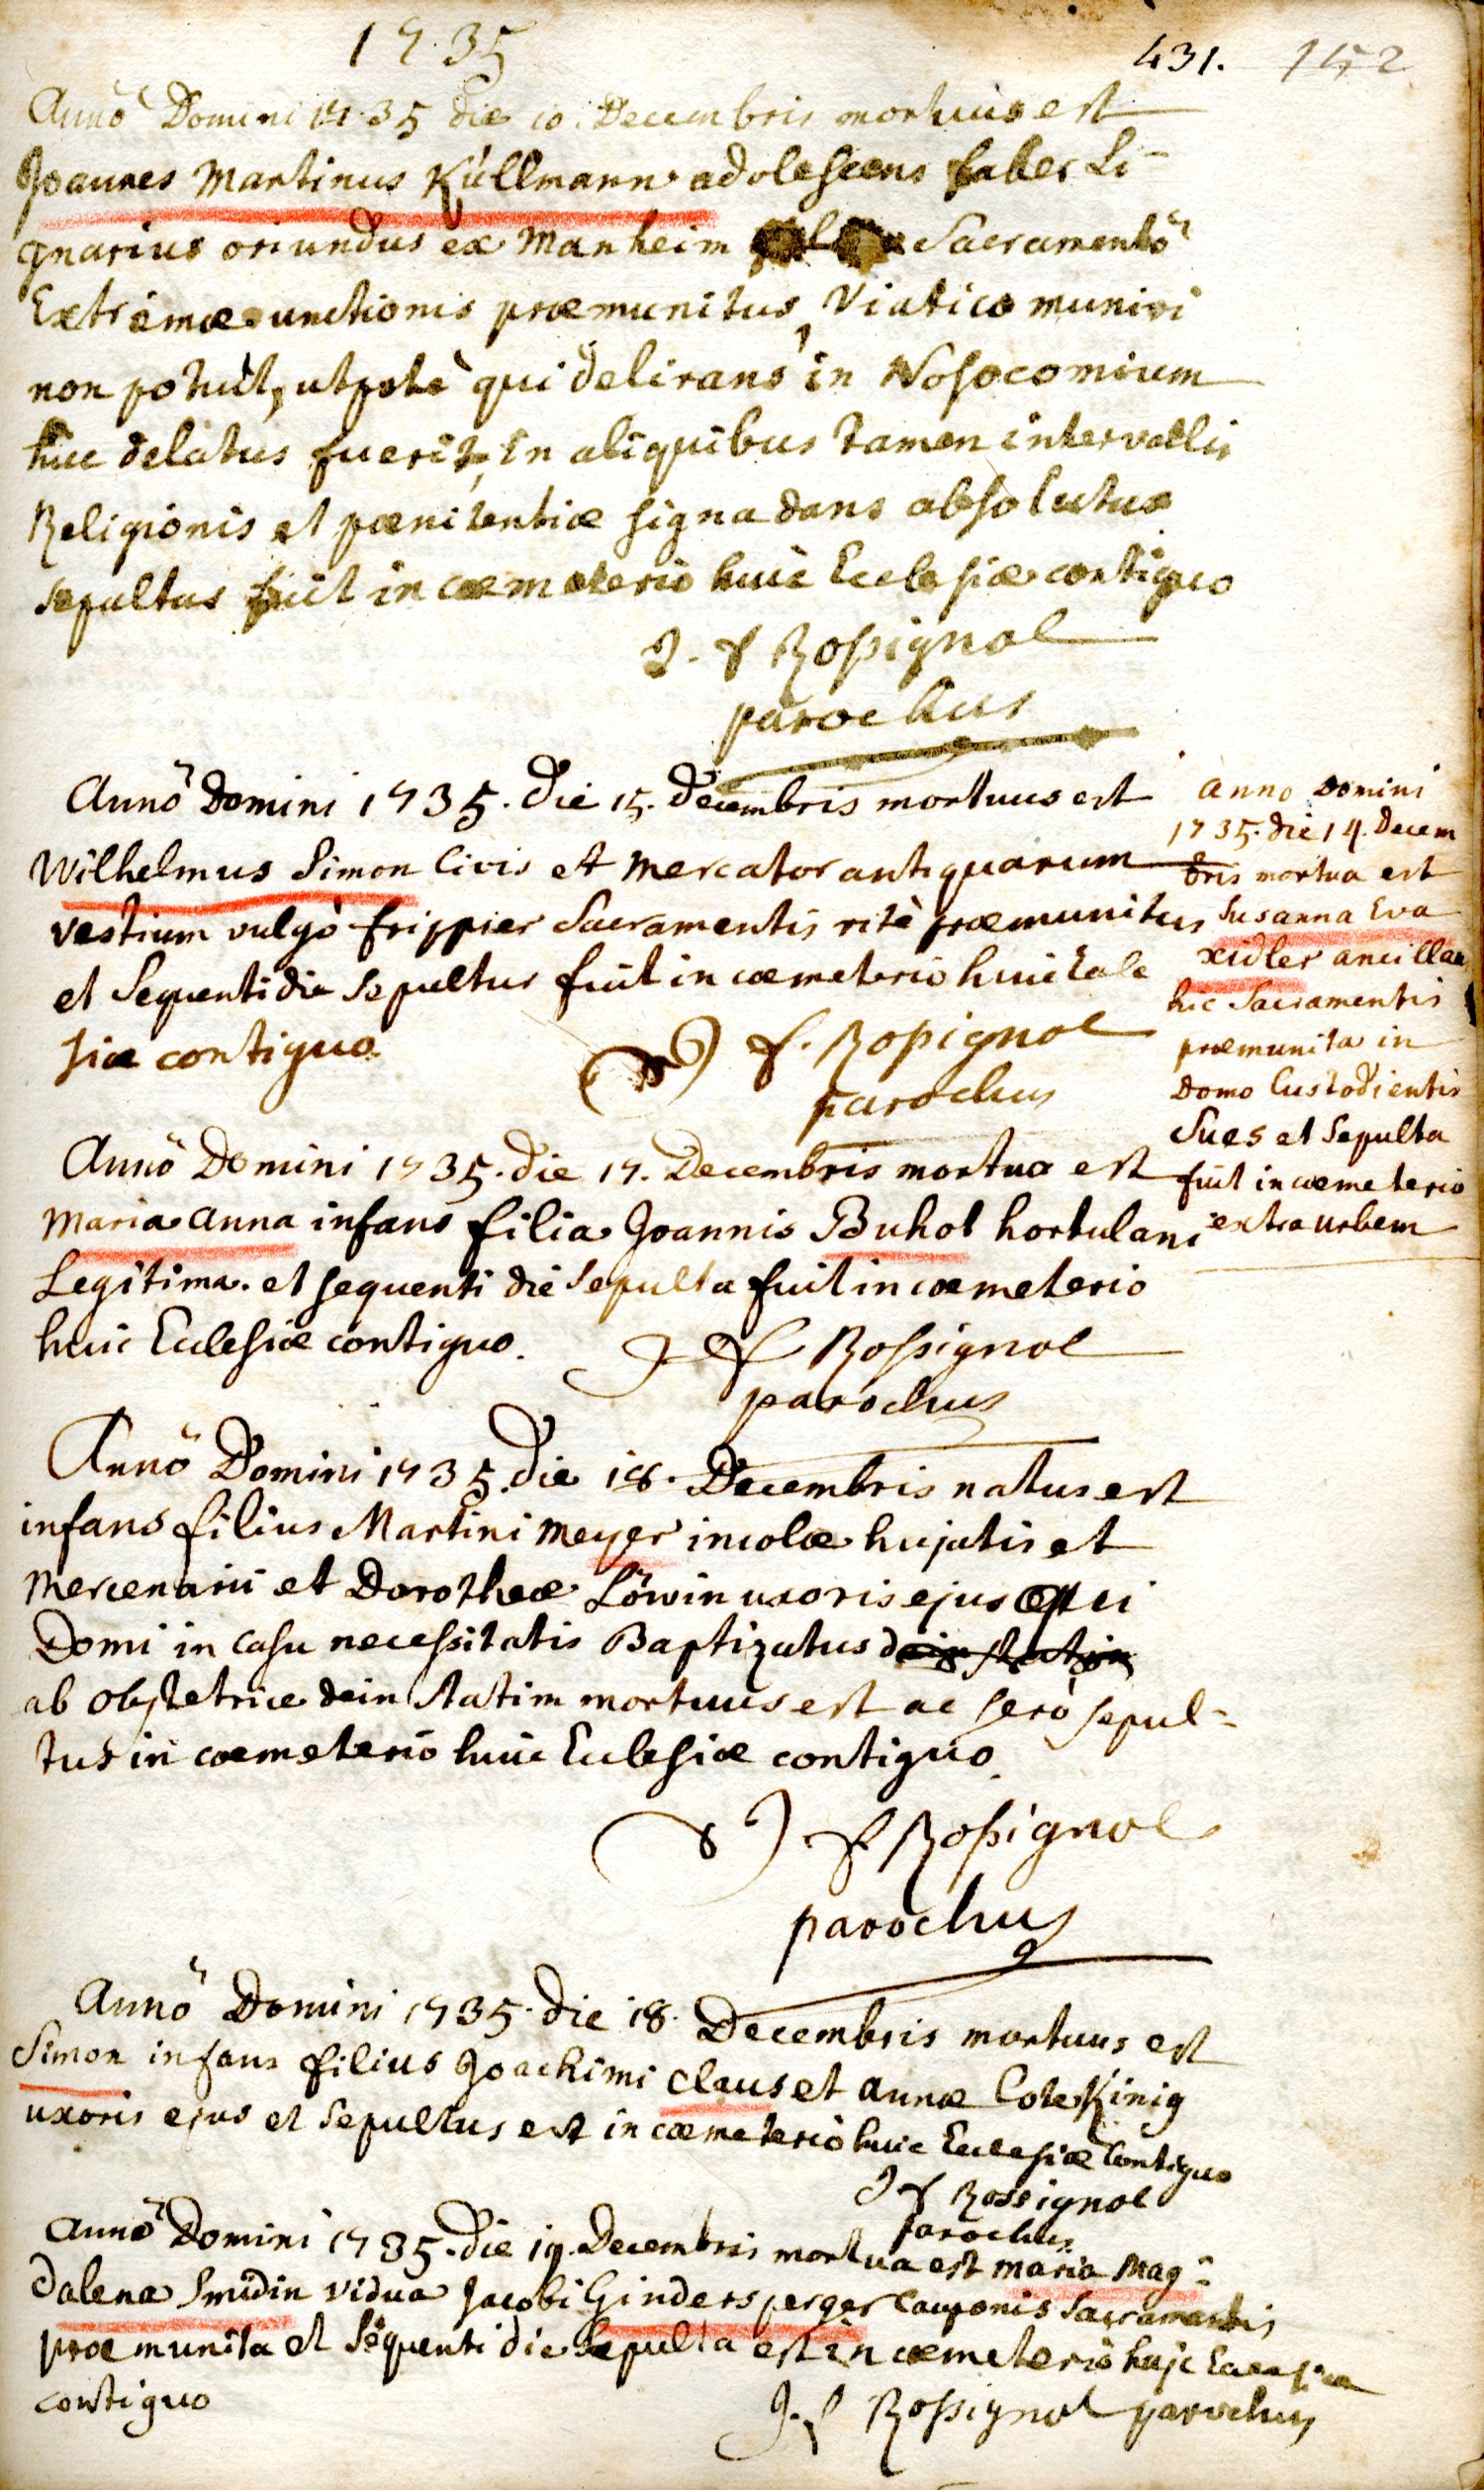 1735
431. 152
Annò Domini 1735 die 10. Decembris mortuus est
Joannes Martinus Küllmann adolescens faber Li-
gnarius oriundus ex Manheim Sacramentò
Extremæ unctionis præmunitus, Viatico muniri
non potuit, utpotè qui delirans in Nosocomium
huc delatus fuerit, in aliquibus tamen intervallis
Religionis et pœnitentiæ signa dans absolutus
sepultus fuit in cœmeterio huic Ecclesiæ contiguo
J. f Rossignol
parochus
Annò Domini 1735. die 15. Decembris mortuus est
Wilhelmus Simon Civis et Mercator antiquarum
vestium vulgò frippier Sacramentis ritè præmunitus
et Sequenti die Sepultus fuit in cœmeterio huic Eccle
siæ contiguo.
J f. Rossignol
parochus
Anno Domini
1735. die 14. Decem
bris mortua est
Susanna Eva
xidler ancilla
hic Sacramentis
præmunita in
Domo Custodientis
Sues et Sepulta
fuit in cœmeterio
extra urbem
Annò Domini 1735. die 17. Decembris mortua est
Maria Anna infans filia Joannis Buhot hortulani
Legitima. et sequenti die Sepulta fuit in cœmeterio
huic Ecclesiæ contiguo.
J f Rossignol
parochus
Annò Domini 1735. die 18. Decembris natus est
infans filius Martini Meyer incolæ hujatis et
Mercenarii et Dorotheæ Löwin uxoris ejus qui
Domi in casu necessitatis Baptizatus dein statim
ab obstetrice dein statim mortuus est ac serò sepul-
tus in cœmeterio huic Ecclesiæ contiguo.
J f Rossignol
parochus
Annò Domini 1735. die 18. Decembris mortuus est
Simon infans filius Joachimi Claus et Annæ Cote Kinig
uxoris ejus et Sepultus est in cœmeteriò huic Ecclesiæ Contiguo
J f Rossignol
parochus
Annò Domini 1735. die 19. Decembris mortua est Maria Mag-
dalena Smidin Vidua Jacobi Ginders perger Cauponis Sacramentis
præmunita et Sequenti die Sepulta est in cœmeteriò huic Ecclesiæ
contiguo
J. f Rossignol parochus